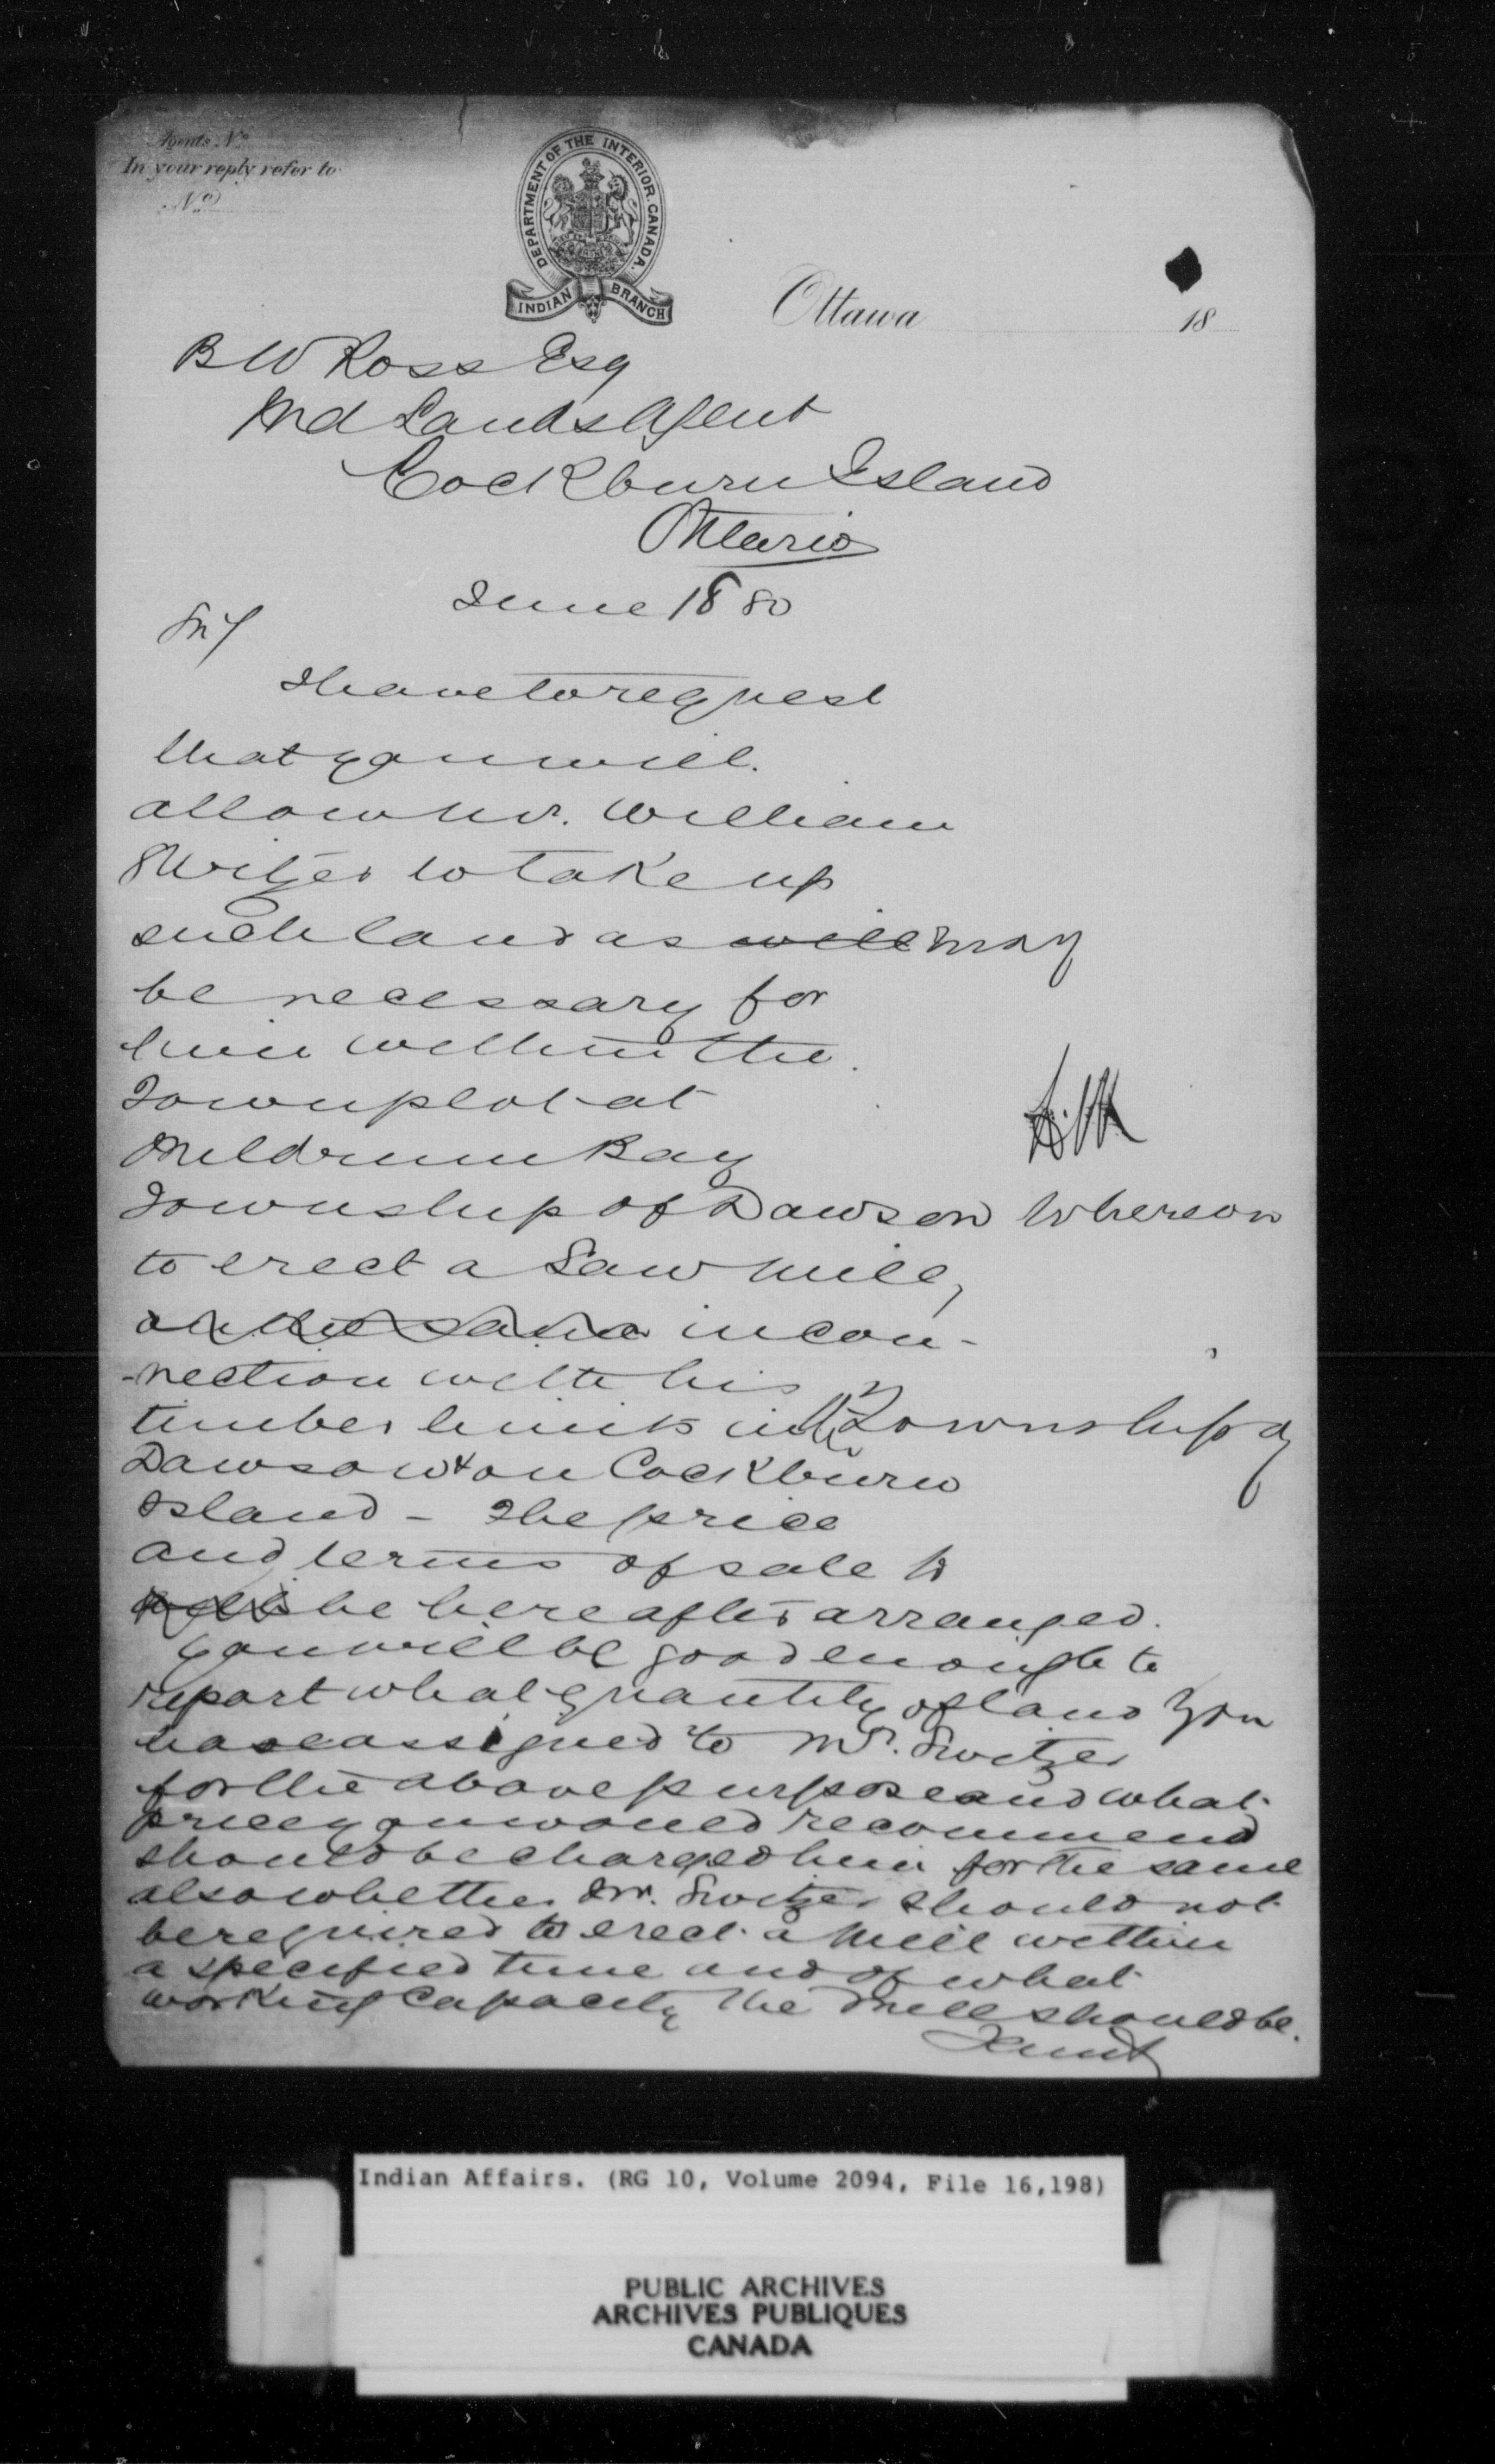 Agents No
In your reply refer to
No
DEPARTMENT OF THE INTERIOR. CANADA.
INDIAN BRANCH
Ottawa 18
B W Ross Esq
Ind Lands Agent
Cockburn Island
Ontario
June 1880
Sir/
I have to request
that you will.
allow Mr. William
Switzer to take up
such land as will may
be necessary for
him within the
Town plot at
Meldrum Bay
Township of Dawson whereon
to erect a Saw Mill,
on the same in con-
-nection with his
timber limits in the Township of
Dawson & on Cockburn
Island - The price
and terms of sale to
will be hereafter arranged.
You will be good enough to
report what quantity of land you
have assigned to Mr. Switzer
for the above purpose and what
price you would recommend
should be charged him for the same
also whether Mr. Switzer should not
be required to erect a Mill within
a specified time and of what
working capacity the Mill should be.
Indian Affairs. (RG 10, Volume 2094, File 16,198)
PUBLIC ARCHIVES
ARCHIVES PUBLIQUES
CANADA